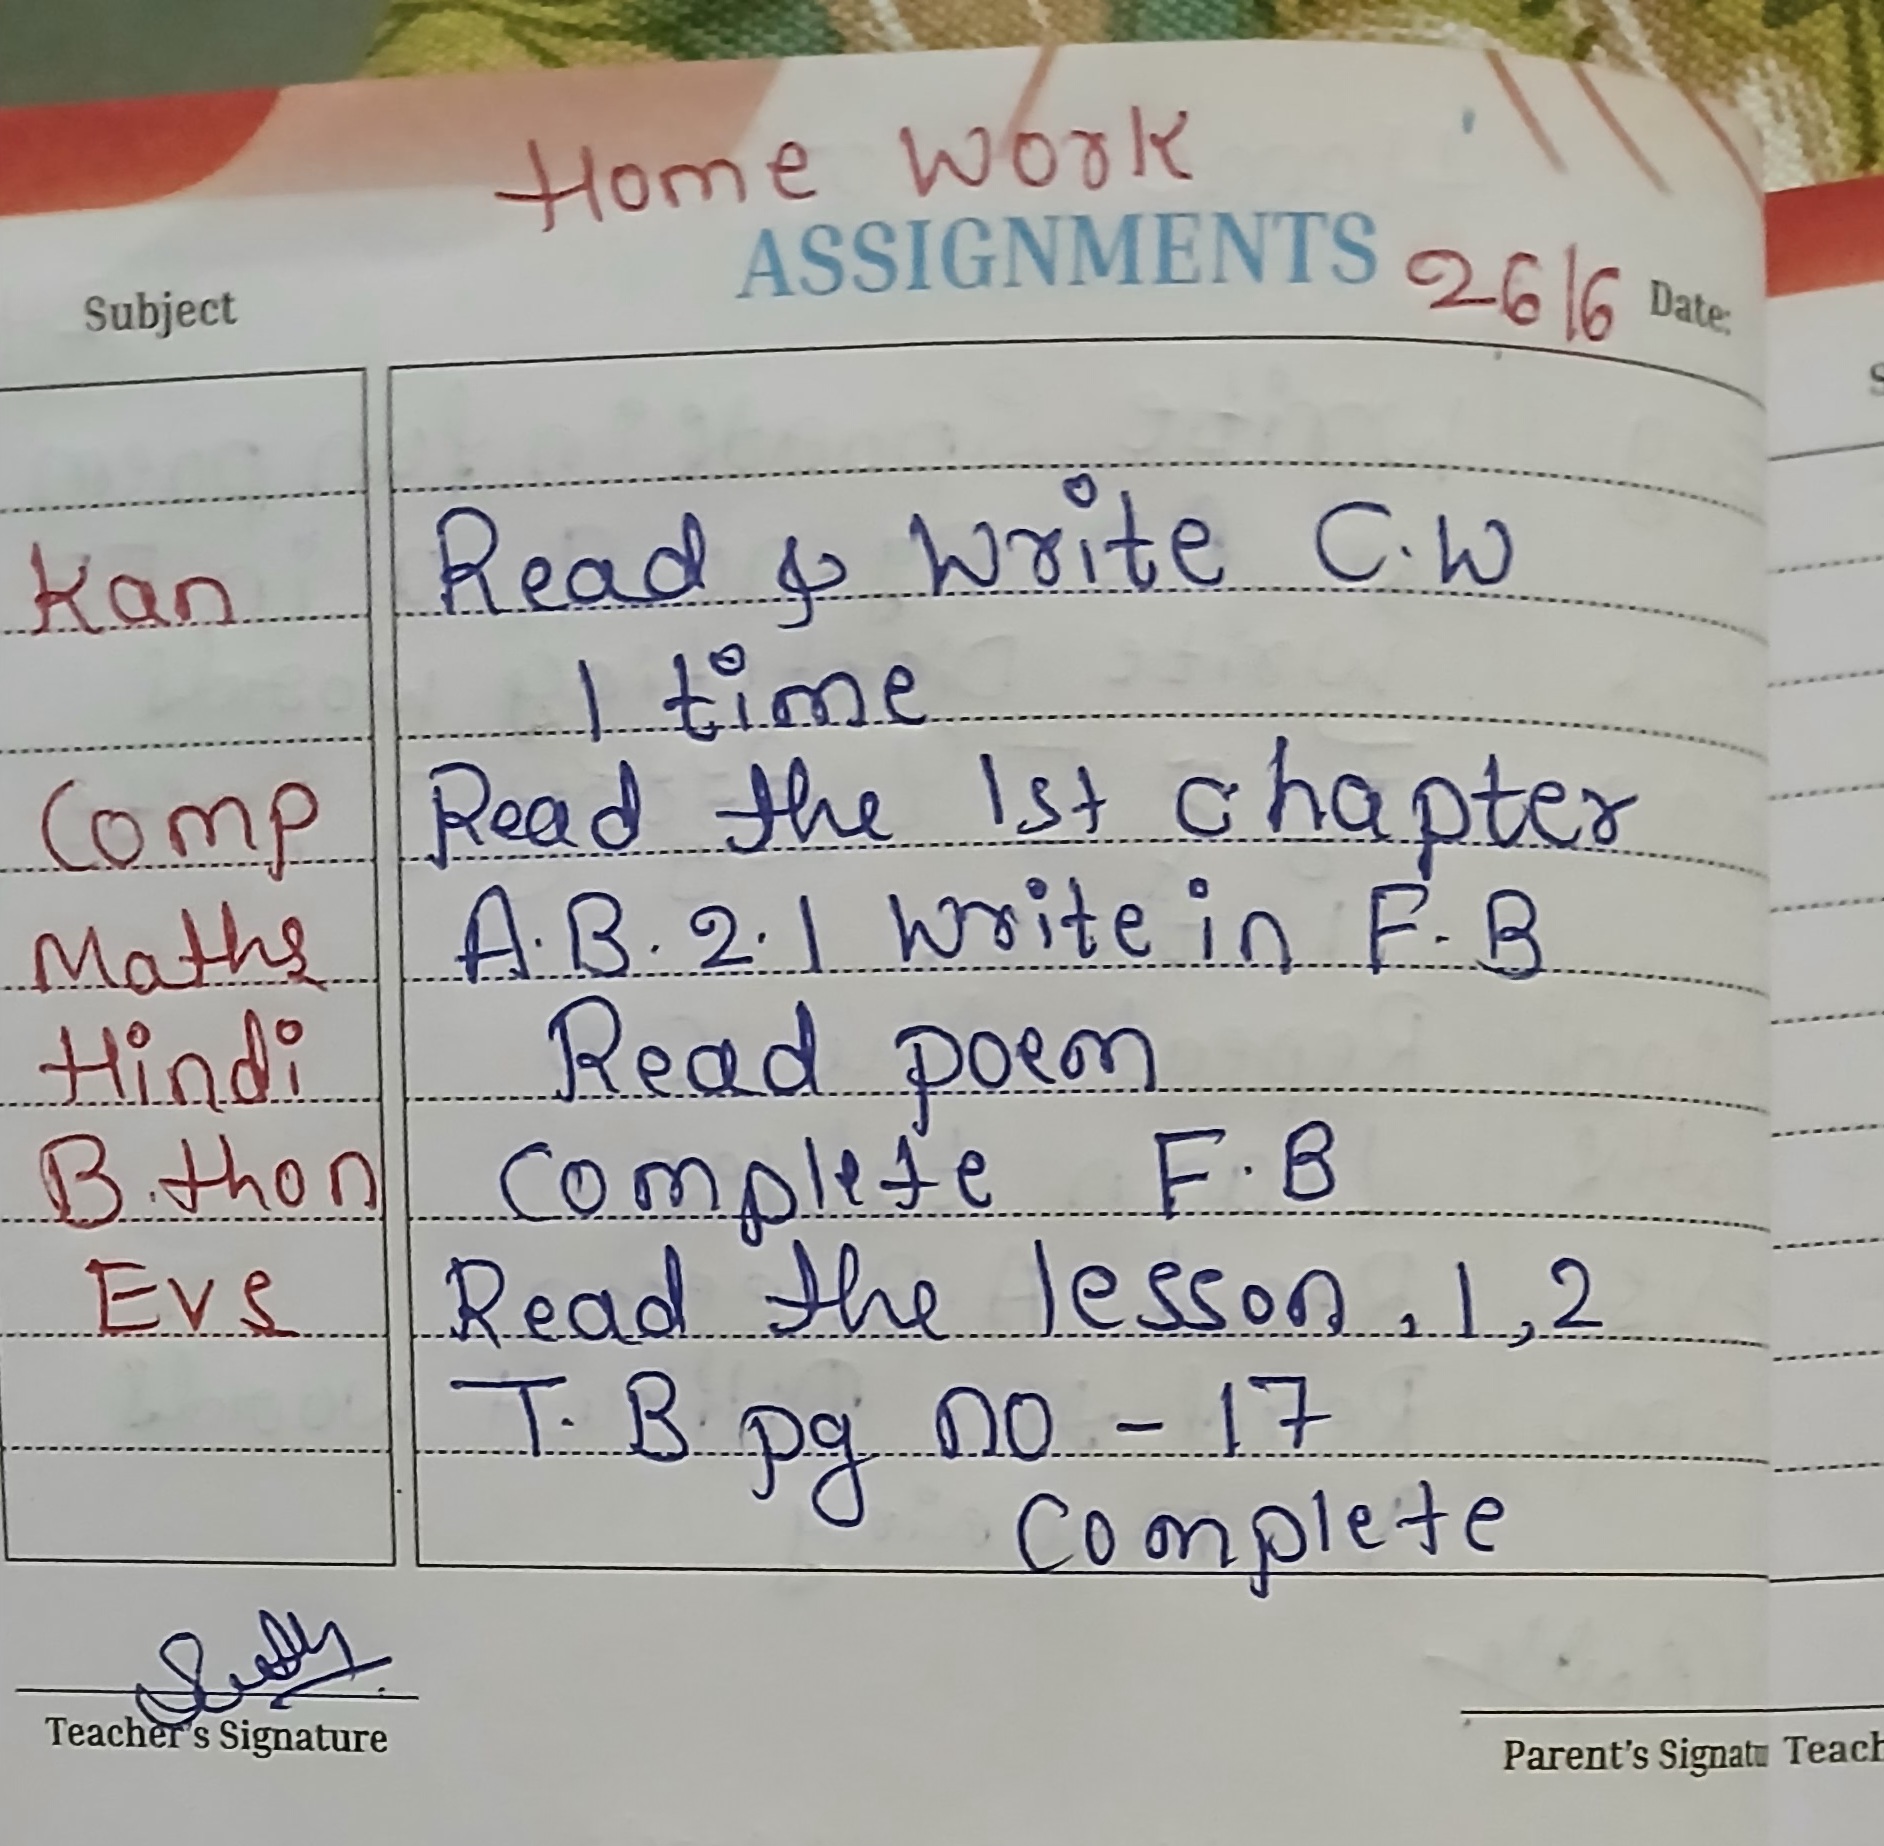 Home Work
ASSIGNMENTS 26/6 Date:
Subject
Kan Read & Write C.W
1 time
Comp Read the 1st chapter
Maths A.B. 2.1 Write in F.B
Hindi Read poem
B.thon Complete F.B
Evs Read the lesson, 1, 2
T.B. pg no - 17
Complete
Teacher's Signature
Parent's Signatu Teach